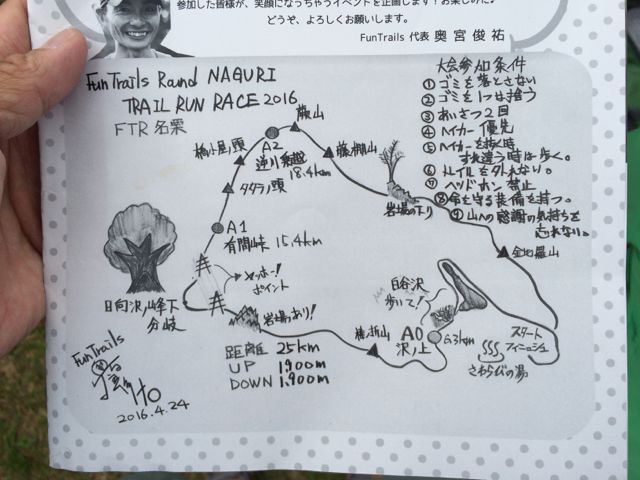 参加した皆様が、笑顔になっちゃうイベントを企画します！お楽しみに♪
どうぞ、よろしくお願いします。
FunTrails 代表 奥宮俊祐
FunTrails Round NAGURI
TRAIL RUN RACE 2016
FTR 名栗
大会参加条件
① ゴミを落とさない
② ゴミを1つは拾う
③ あいさつ2回
④ ハイカー優先
⑤ ハイカーを抜く時
すれ違う時は歩く。
⑥ トレイルを外れない。
⑦ ヘッドホン禁止
⑧ 命を守る装備を持つ。
⑨ 山への感謝の気持ちを
忘れない。
蕨山
橋小屋ノ頭
A2
逆川乗越
18.4km
藤棚山
タタラノ頭
岩場の下り
A1
有間峠 15.4km
金比羅山
ヤッホー!
ポイント
日向沢ノ峰下
分岐
岩場あり!
白谷沢
歩いて!
棒ノ折山
A0
沢ノ上
6.3km
スタート
フィニッシュ
さわらびの湯
距離 25km
UP 1900m
DOWN 1,900m
FunTrails
HO
2016.4.24